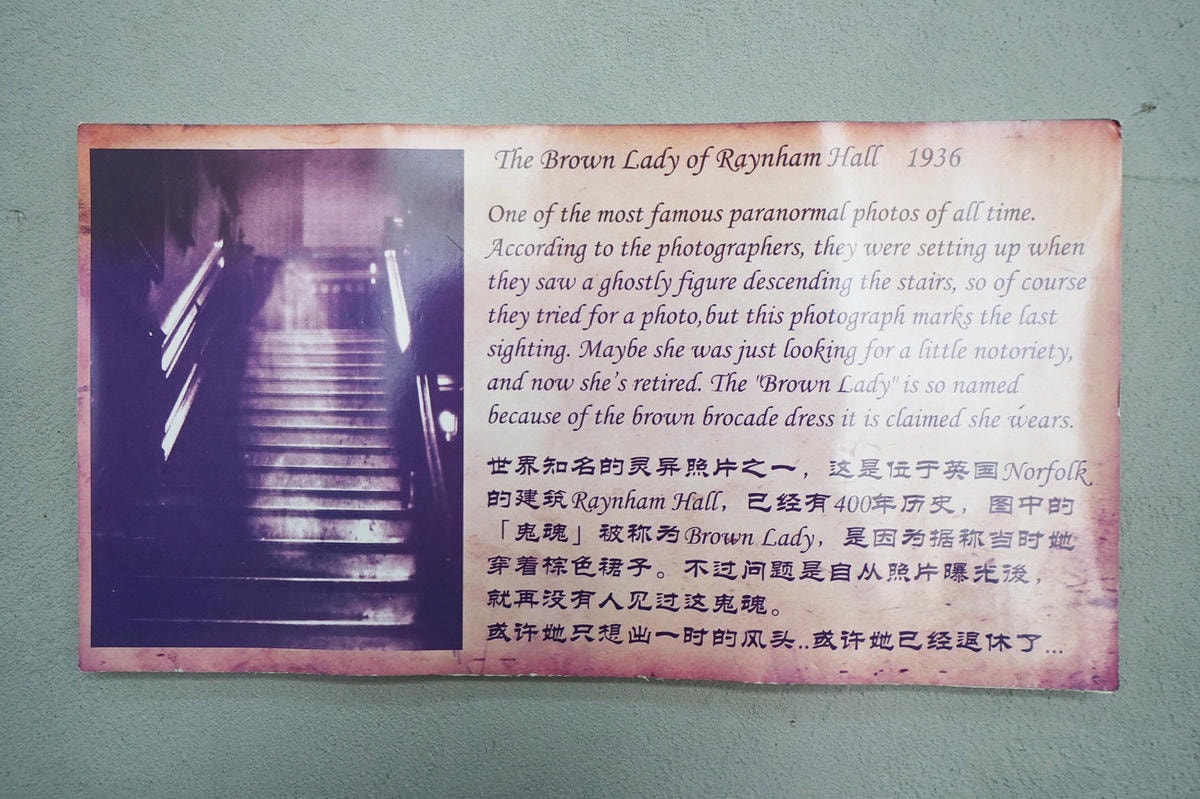 The Brown Lady of Raynham Hall 1936
One of the most famous paranormal photos of all time.
According to the photographers, they were setting up when
they saw a ghostly figure descending the stairs, so of course
they tried for a photo,but this photograph marks the last
sighting. Maybe she was just looking for a little notoriety,
and now she's retired. The "Brown Lady" is so named
because of the brown brocade dress it is claimed she wears.
世界知名的灵异照片之一，这是位于英国Norfolk
的建筑Raynham Hall，已经有400年历史，图中的
「鬼魂」被称为Brown Lady，是因为据称当时她
穿着棕色裙子。不过问题是自从照片曝光後，
就再没有人见过这鬼魂。
或许她只想出一时的风头..或许她已经退休了...